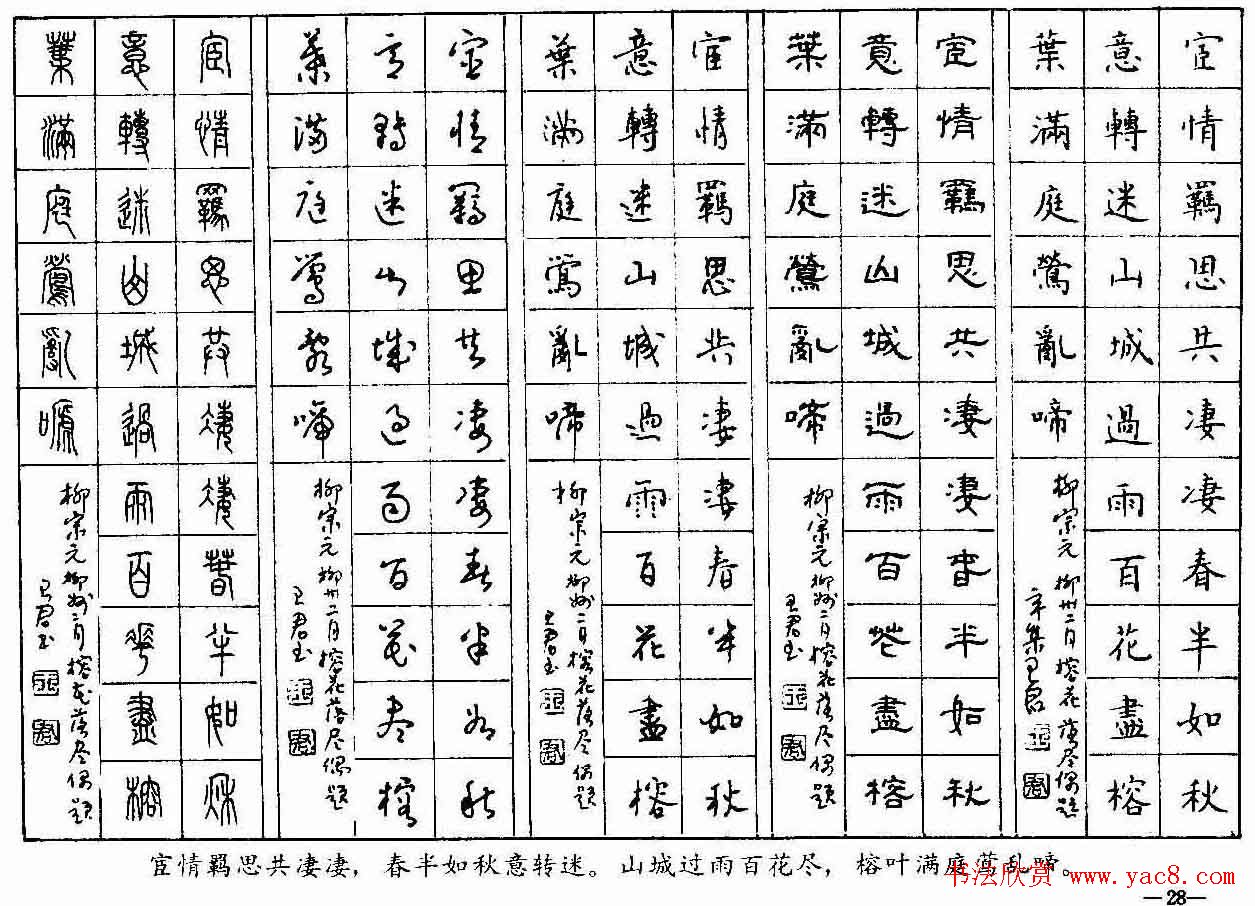 宦情羇思共凄凄春半如秋
意轉迷山城過雨百花盡榕
葉滿庭鶯亂啼
柳宗元柳州二月榕花落尽偶题
宦情羇思共凄凄春半如秋
意轉迷山城過雨百花盡榕
葉滿庭鶯亂啼
柳宗元柳州二月榕花落尽偶题
王君书
宦情羇思共凄凄春半如秋
意轉迷山城過雨百花盡榕
葉滿庭鶯亂啼
柳宗元柳州二月榕花落尽偶题
王君书
宦情羇思共凄凄春半如秋
意轉迷山城過雨百花盡榕
葉滿庭鶯亂啼
柳宗元柳州二月榕花落尽偶题
王君书
宦情羇思共凄凄春半如秋
意轉迷山城過雨百花盡榕
葉滿庭鶯亂嗁
柳宗元柳州二月榕花落尽偶题
王君书
宦情羁思共凄凄，春半如秋意转迷。山城过雨百花尽，榕叶满庭莺乱啼。
书法欣赏 www.yac8.com
—28—